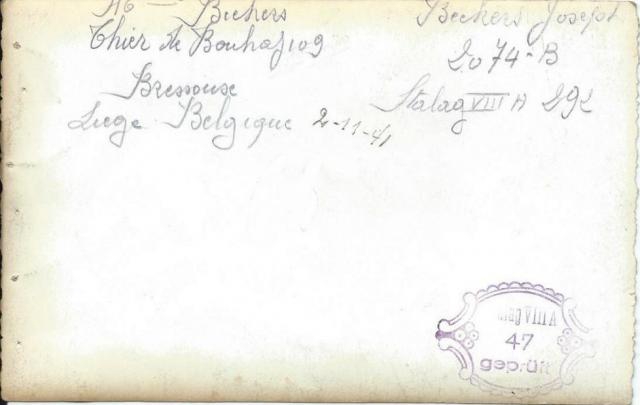 Beckers
Thier de Bouhay 109
Bressoux
Liege Belgique 2-11-41
Beckers Joseph
2074-B
Stalag VIII A 292
VIII A
47
geprüft